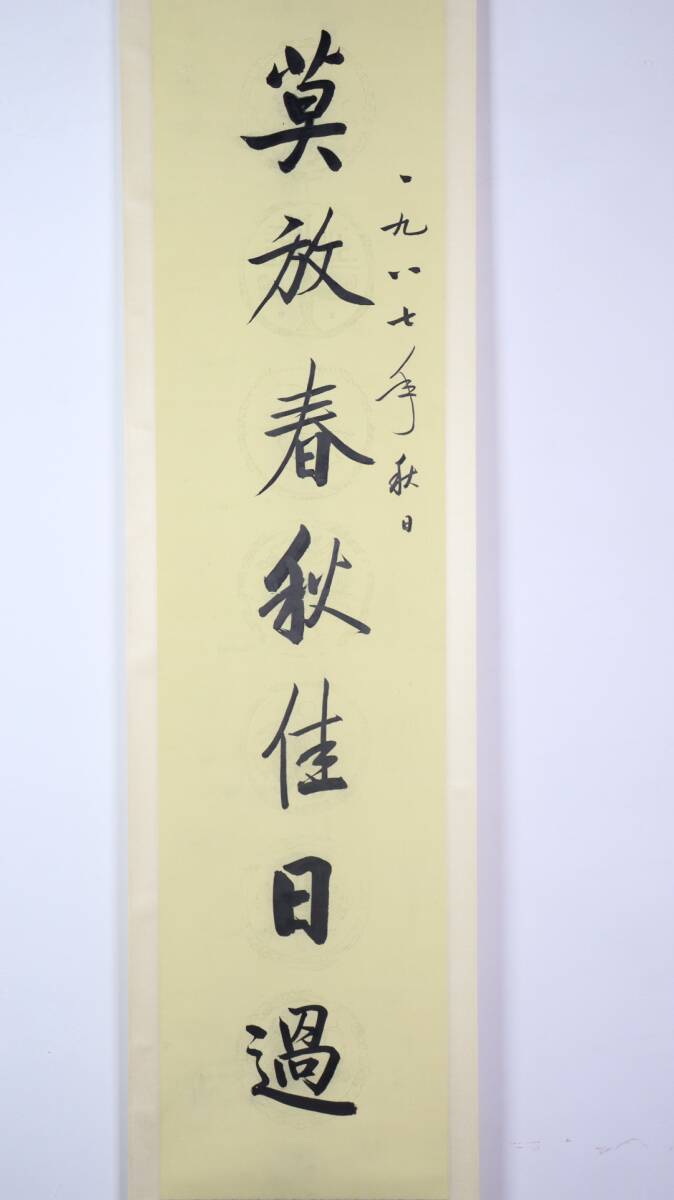 一九八七年秋日
莫放春秋佳日過